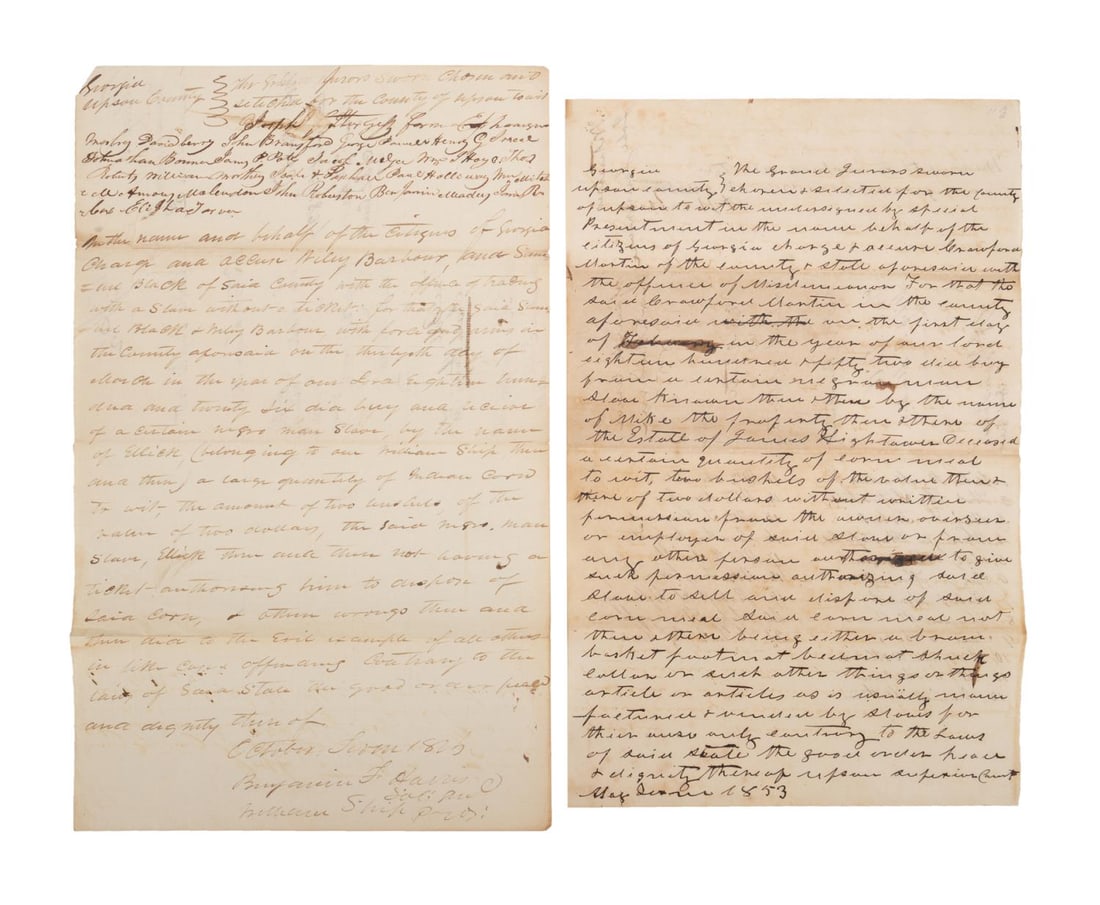 Georgia
Upson County
The Jurors sworn Chosen and
selected for the County of Upson to wit
Joseph form
Mosley Davidberry John Bransford George Powel & Henry G
Bonner James P Jacob Wm T Hays Thos
William & Raphael Paul Holloway Wm
John Robertson Benjamin
Elijha Tarver
In the name and behalf of the Citizens of Georgia
Charge and accuse Wiley Barbour, and Sam
= uel Black of Said County with the offence of trading
with a Slave without a ticket. for that the Said Sam
= uel Black & Wiley Barbour with force and arms in
the County aforesaid on the day of
March in the year of our Lord Eighteen hun=
dred and twenty Six did buy and receive
of a certain negro man Slave by the name
of Ellick, (belonging to one William Ship then
and then) a large quantity of Indian Corn
To wit, the amount of two bushels of the
value of two dollars, the Said negro, man
Slave, Ellick then and then not having a
ticket authorising him to dispose of
Said Corn, & other wrongs then and
then did to the Evil example of all others
in like case offending Contrary to the
laws of Said State the good order peace
and dignity thereof
October Term 1826
Benjamin F Har
William Ship
Georgia
Upson County
The Grand Jurors sworn
chosen & selected for the County
of Upson to wit the undersigned by special
Presentment in the name behalf of the
citizens of Georgia charge & accuse Crawford
Martin of the county & state aforesaid with
the offence of Misdemeanor For that the
said Crawford Martin in the county
aforesaid with the on the first day
of in the year of our lord
eighteen hundred & fifty two did buy
from a certain negro man
slave known then & there by the name
of Mike the property then & there of
the Estate of James Hightower Deceased
a certain quantity of corn meal
to wit, two bushels of the value then &
there of two dollars without written
permission from the owner overseer
or employer of said slave or from
any other person to give
such permission authorizing said
slave to sell and dispose of said
corn meal said corn meal not
then & there being either a broom
basket foot mat bed mat shuck
collar or such other things or things
article or articles as is usually manu
factured & vended by slaves for
their use only contrary to the Laws
of said state the good order peace
& dignity thereof Upson superior Court
May Term 1853